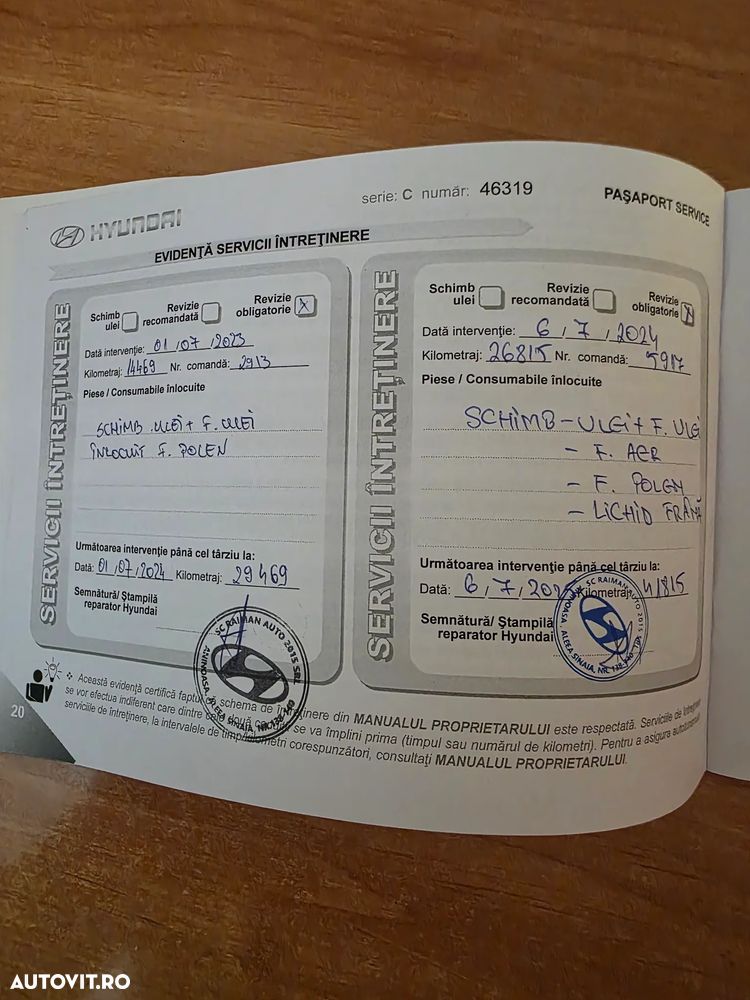 serie: C număr: 46319
PAŞAPORT SERVICE
HYUNDAI
EVIDENŢĂ SERVICII ÎNTREŢINERE
SERVICII ÎNTREŢINERE
Schimb ulei
Revizie recomandată
Revizie obligatorie X
Dată intervenţie: 01/07/2023
Kilometraj: 14469 Nr. comandă: 2913
Piese / Consumabile înlocuite
SCHIMB ULEI + F. ULEI
ÎNLOCUIT F. POLEN
Următoarea intervenţie până cel târziu la:
Dată: 01/07/2024 Kilometraj: 29469
Semnătură/ Ştampilă
reparator Hyundai
SC RAIMAN AUTO 2015 SRL
ANINOASA, ALEEA SINAIA, NR.
SERVICII ÎNTREŢINERE
Schimb ulei
Revizie recomandată
Revizie obligatorie X
Dată intervenţie: 6/7/2024
Kilometraj: 26815 Nr. comandă: 5917
Piese / Consumabile înlocuite
SCHIMB - ULEI + F. ULEI
- F. AER
- F. POLEN
- LICHID FRÂNĂ
Următoarea intervenţie până cel târziu la:
Dată: 6/7/2025 Kilometraj: 41815
Semnătură/ Ştampilă
reparator Hyundai
SC RAIMAN AUTO 2015
ANINOASA, ALEEA SINAIA, NR.
❖ Această evidenţă certifică faptul că schema de întreţinere din MANUALUL PROPRIETARULUI este respectată. Serviciile de întreţinere
se vor efectua indiferent care dintre cele două condiţii se va împlini prima (timpul sau numărul de kilometri). Pentru a asigura autoturismului
serviciile de întreţinere, la intervalele de timp/kilometri corespunzători, consultaţi MANUALUL PROPRIETARULUI.
20
AUTOVIT.RO